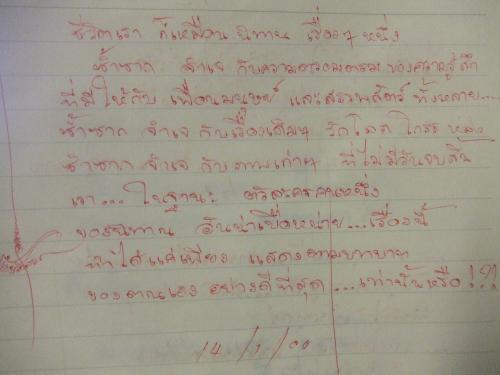 ชีวิตเรา ก็เหมือน นิทาน เรื่องๆ หนึ่ง
ซ้ำซาก จำเจ กับความ ของความรู้สึก
ที่มีให้กับ เพื่อนมนุษย์ และสรรพสัตว์ ทั้งหลาย....
ซ้ำซาก จำเจ กับเรื่องเดิมๆ รัก โลภ โกรธ หลง
ซ้ำซาก จำเจ กับ ภาพเก่าๆ ที่ไม่มีวันจบสิ้น
เรา... ในฐานะ ตัวละครคนหนึ่ง
ของนิทาน อันน่าเบื่อหน่าย...เรื่องนี้
ทำได้แค่เพียง แสดงตามบทบาท
ของตนเอง อย่างดีที่สุด ...เท่านั้นหรือ !?!
14 / 1 / 00